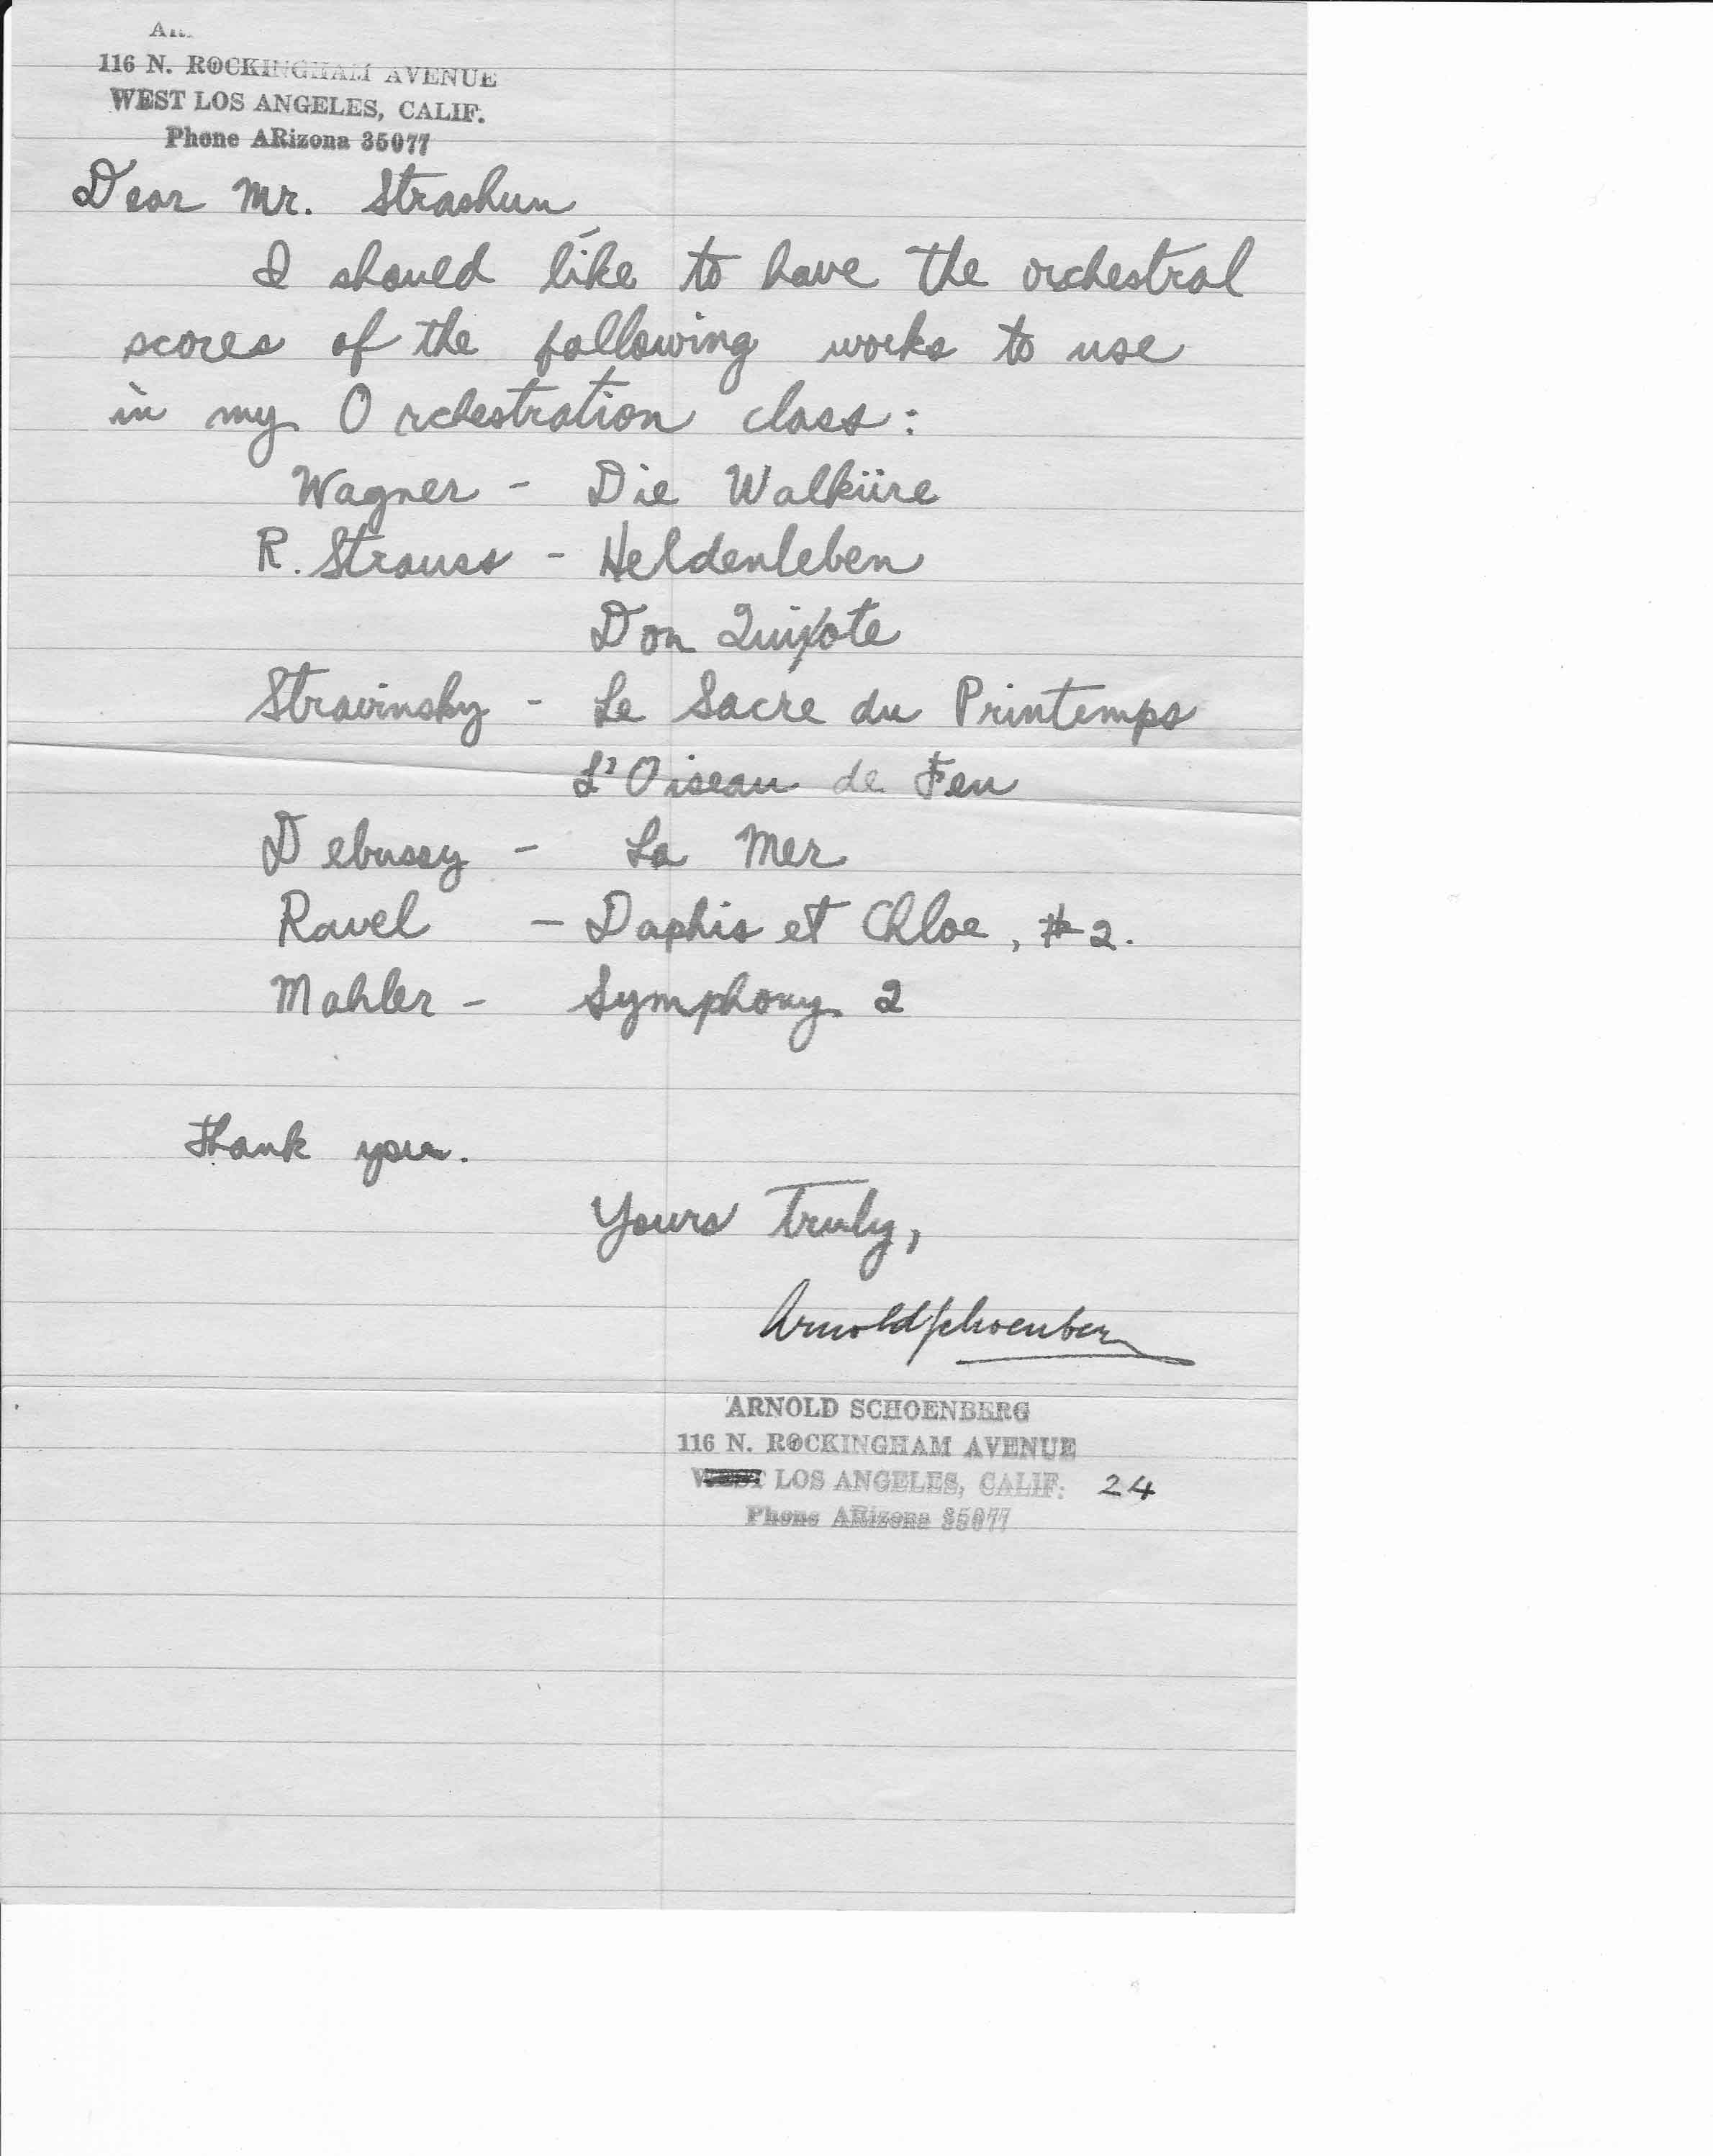 116 N. ROCKINGHAM AVENUE
WEST LOS ANGELES, CALIF.
Phone ARizona 35077
Dear Mr. Strashun,
I should like to have the orchestral
scores of the following works to use
in my Orchestration class:
Wagner - Die Walküre
R. Strauss - Heldenleben
Don Quixote
Stravinsky - Le Sacre du Printemps
L'Oiseau de Feu
Debussy - La Mer
Ravel - Daphis et Chloe, #2.
Mahler - Symphony 2
Thank you.
Yours Truly,
Arnold Schoenberg
ARNOLD SCHOENBERG
116 N. ROCKINGHAM AVENUE
WEST LOS ANGELES, CALIF. 24
Phone ARizona 35077